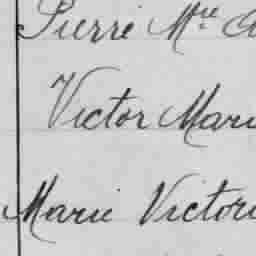 Pierre Mre
Victor Mari
Marie Victori